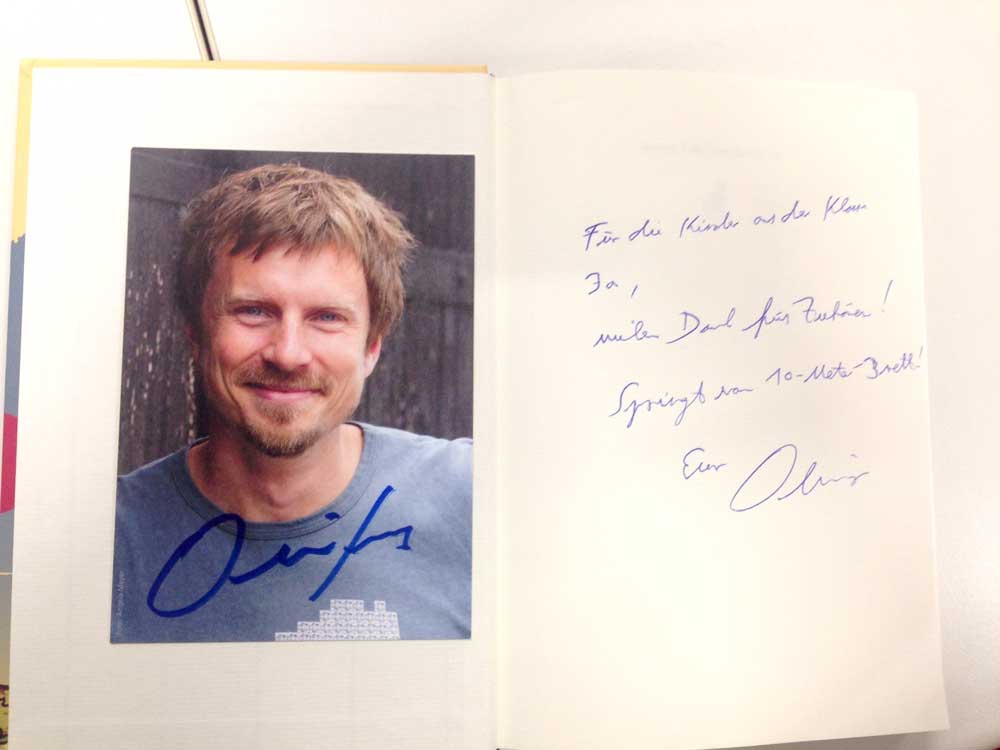 Für die Kinder aus der Klasse
3a,
vielen Dank fürs Zuhören!
Springt vom 10-Meter-Brett!
Euer Oliver